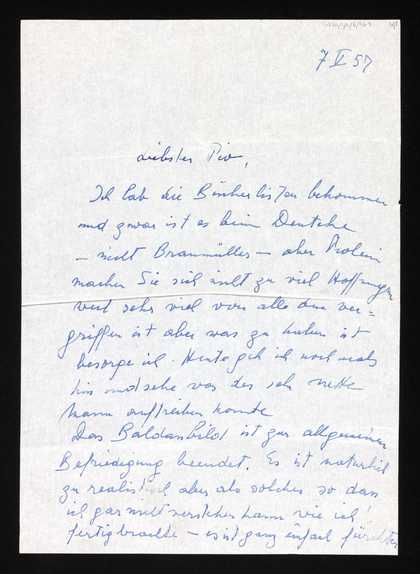 7 V 57
Liebster Pio,
Ich hab die Bücherlisten bekommen
und zwar ist es beim Deuticke
– nicht Braumüller – aber
machen Sie sich nicht zu viel Hoffnungen
weil sehr viel von alle dem ver=
griffen ist aber was zu haben ist
besorge ich. Heute geh ich nochmals
hin und sehe was der ich
kann auftreiben konnte
Das Baldassbild ist zur allgemeinen
Befriedigung beendet. Es ist natürlich
zu realistisch aber als solches so dass
ich gar nicht verstehen kann wie ich's
fertigbrachte – es ist ganz einfach